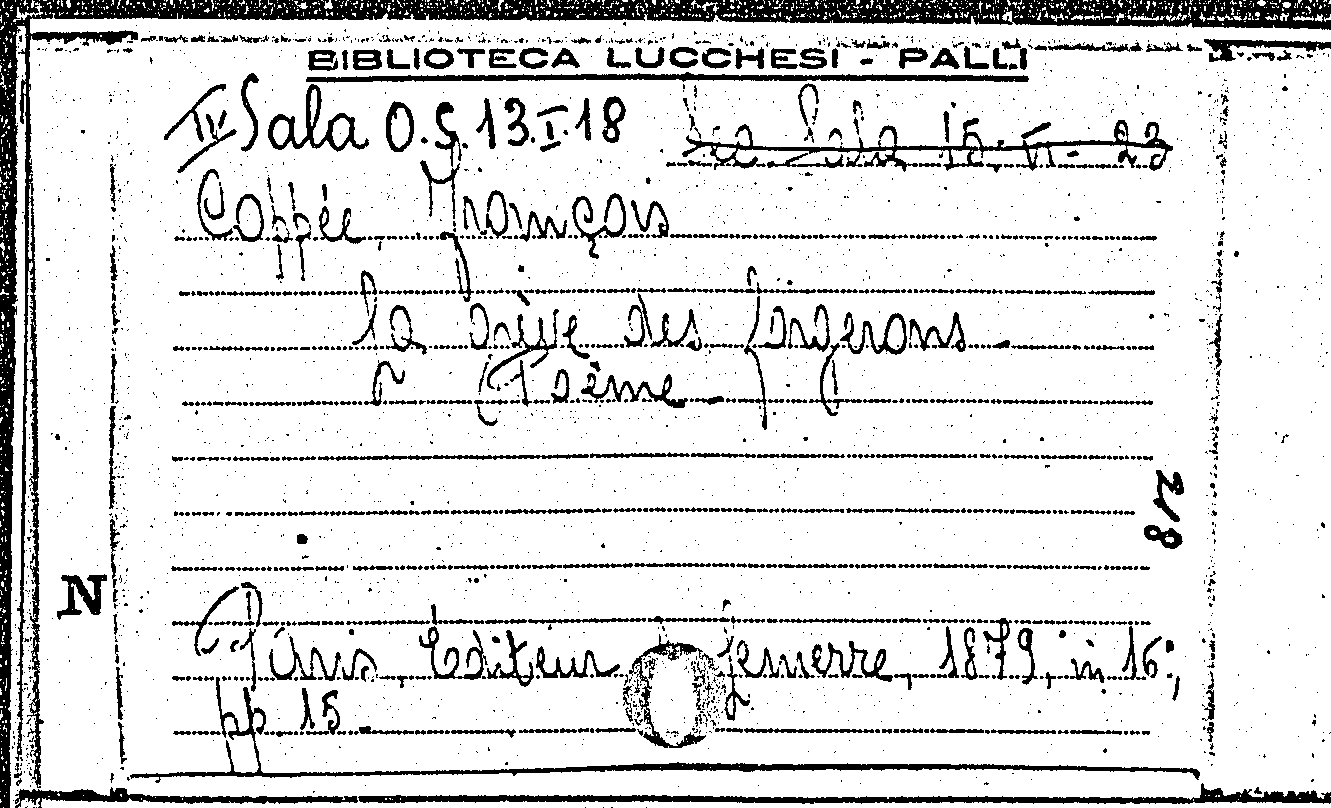 BIBLIOTECA LUCCHESI - PALLI
IV Sala O.S.13.I.18 Sala 15. VI - 23
Coppée, François
La grève des forgerons.
Poème.
218
N
Paris, Editeur Lemerre, 1879, in 16°,
pp. 15.